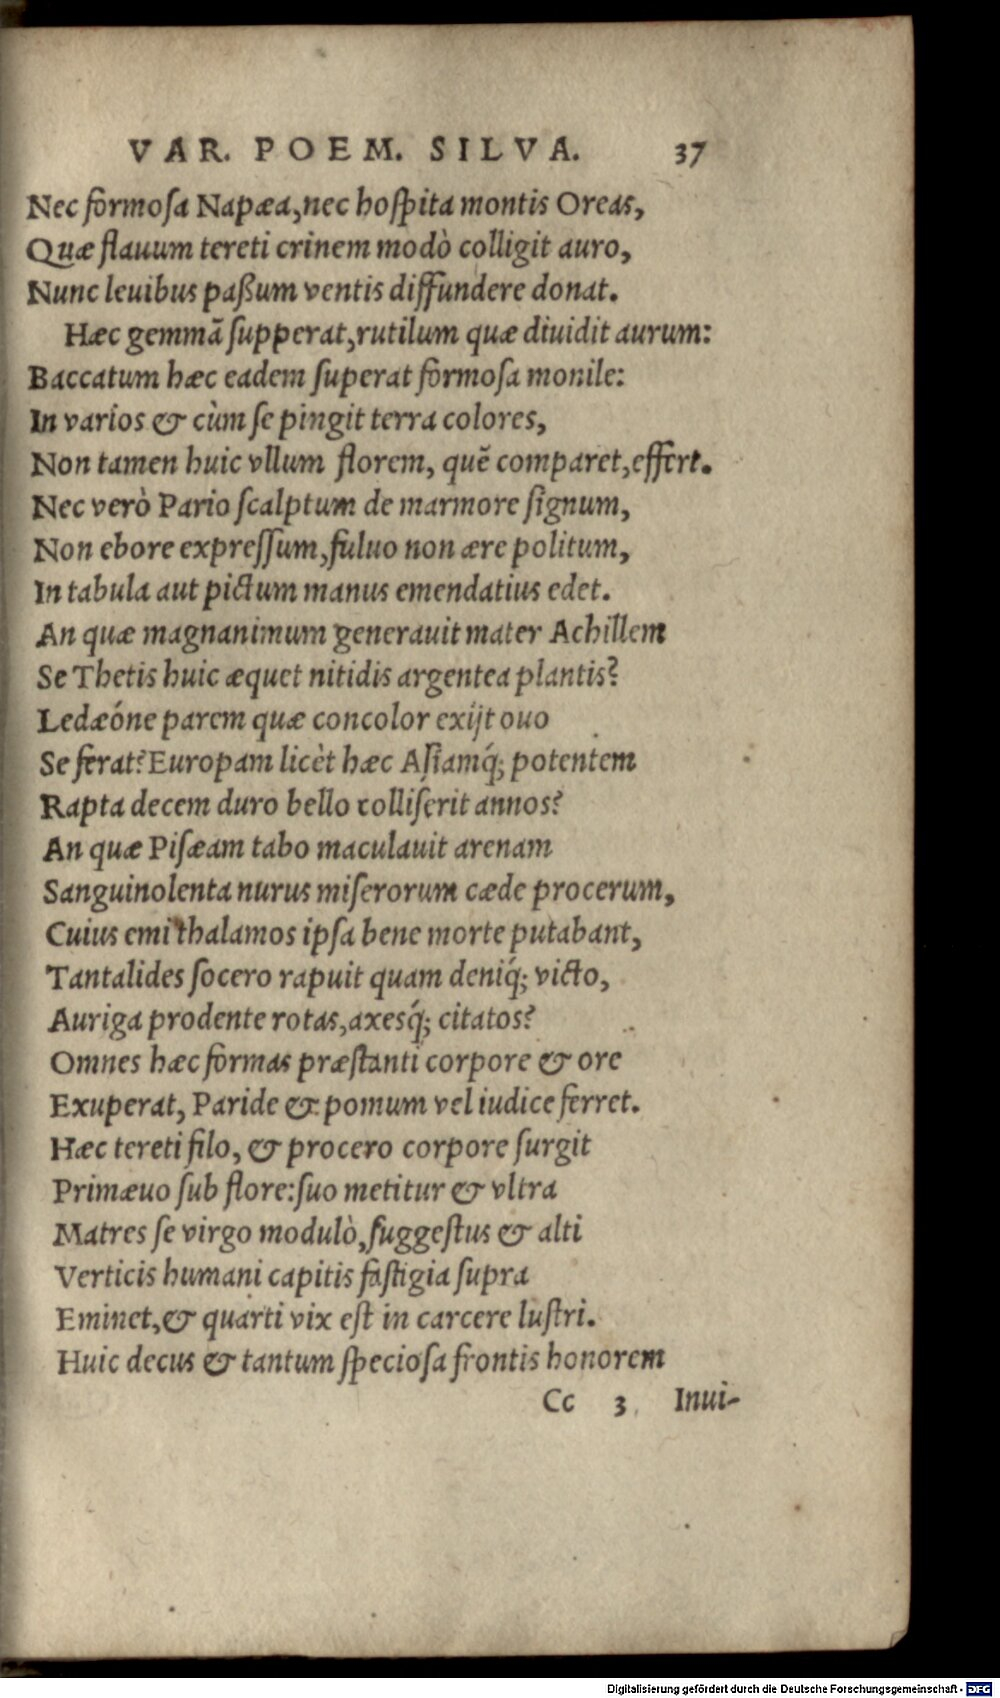 VAR. POEM. SILVA. 37
Nec formosa Napæa, nec hospita montis Oreas,
Quæ flauum tereti crinem modò colligit auro,
Nunc leuibus paßum ventis diffundere donat.
Hæc gemmã supperat, rutilum quæ diuidit aurum:
Baccatum hæc eadem superat formosa monile:
In varios & cùm se pingit terra colores,
Non tamen huic vllum florem, quẽ comparet, effert.
Nec verò Pario scalptum de marmore signum,
Non ebore expressum, fuluo non ære politum,
In tabula aut pictum manus emendatius edet.
An quæ magnanimum generauit mater Achillem
Se Thetis huic æquet nitidis argentea plantis?
Ledæóne parem quæ concolor exijt ouo
Se ferat? Europam licèt hæc Asiamq́; potentem
Rapta decem duro bello colliserit annos?
An quæ Pisæam tabo maculauit arenam
Sanguinolenta nurus miserorum cæde procerum,
Cuius emi thalamos ipsa bene morte putabant,
Tantalides socero rapuit quam deniq́; victo,
Auriga prodente rotas, axesq́; citatos?
Omnes hæc formas præstanti corpore & ore
Exuperat, Paride & pomum vel iudice ferret.
Hæc tereti filo, & procero corpore surgit
Primæuo sub flore: suo metitur & vltra
Matres se virgo modulò, suggestus & alti
Verticis humani capitis fastigia supra
Eminet, & quarti vix est in carcere lustri.
Huic decus & tantum speciosa frontis honorem
Cc 3 Inui-
Digitalisierung gefördert durch die Deutsche Forschungsgemeinschaft - DFG